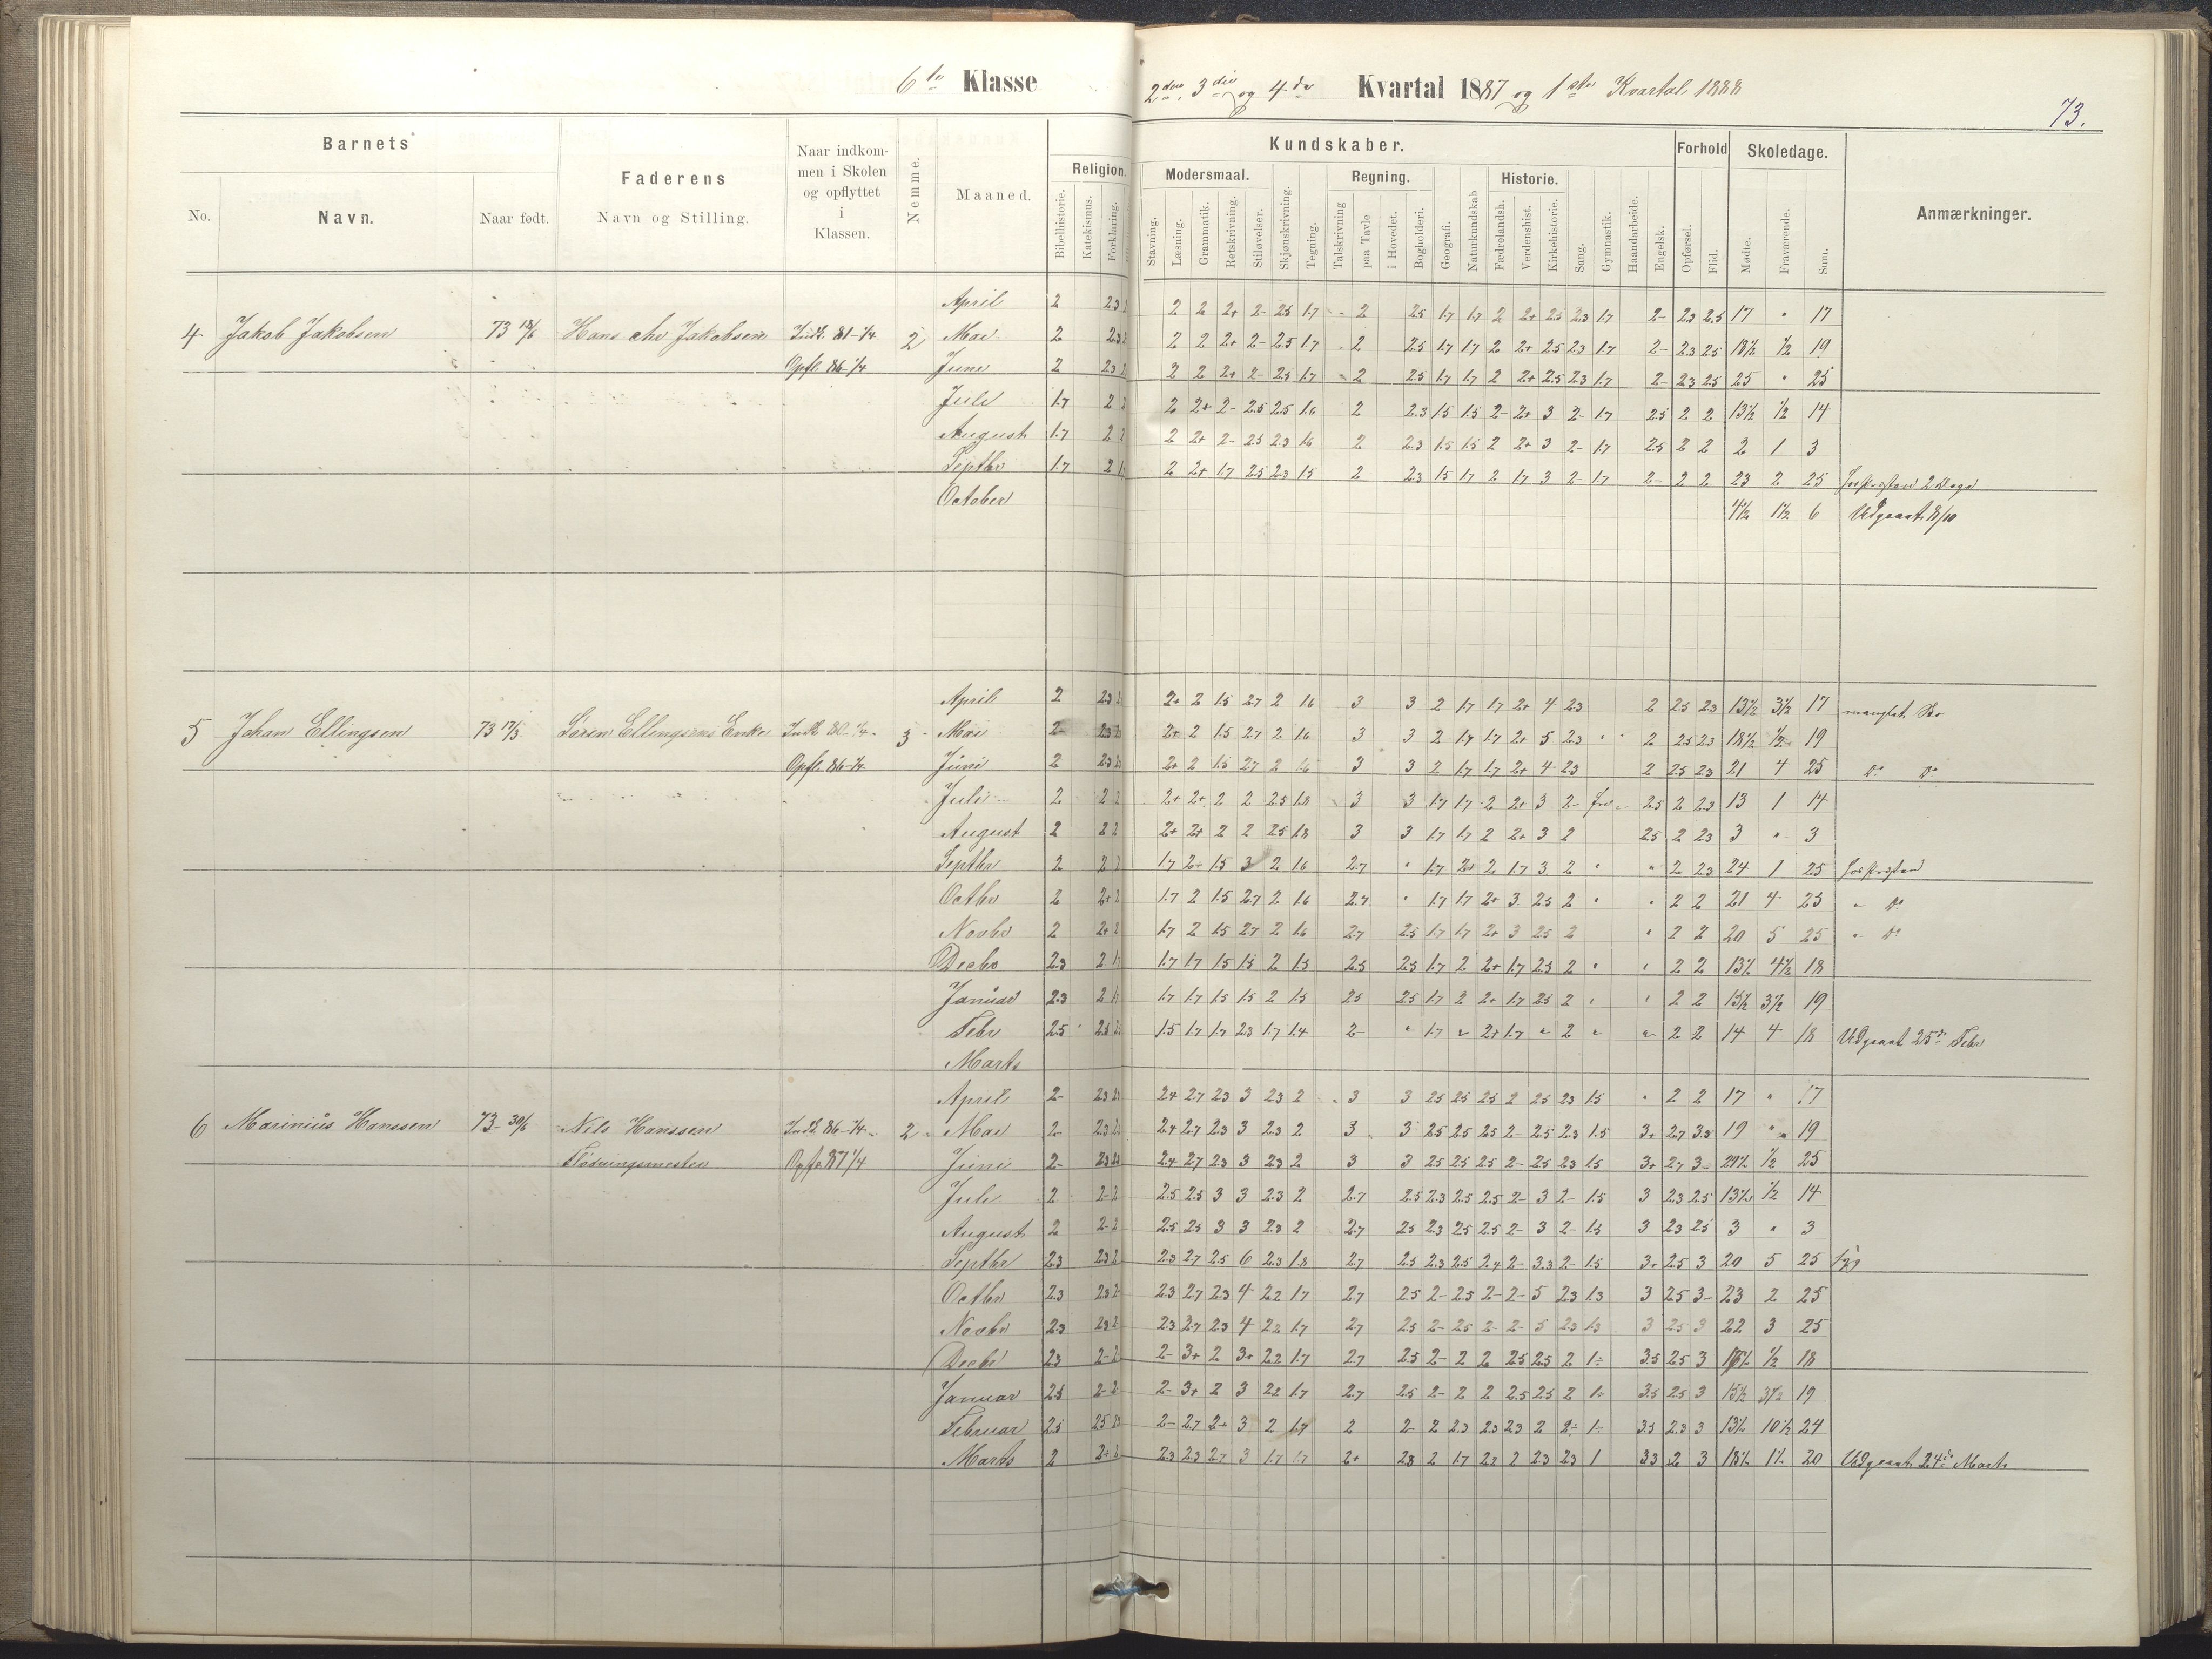 6te Klasse
2den, 3die og 4de Kvartal 1887 og 1ste Kvartal 1888
73.
Barnets
No.
Navn.
Naar født.
Faderens
Navn og Stilling.
Naar indkom-
men i Skolen
og opflyttet
i
Klassen.
Nemme.
Maaned.
Kundskaber.
Religion.
Bibelhistorie.
Katekismus.
Forklaring.
Modersmaal.
Stavning.
Læsning.
Grammatik.
Retskrivning.
Stiløvelser.
Skjønskrivning.
Tegning.
Regning.
Talskrivning
paa Tavle
i Hovedet.
Bogholderi.
Geografi.
Naturkundskab
Historie.
Fædrelandsh.
Verdenshist.
Kirkehistorie.
Sang.
Gymnastik.
Haandarbeide.
Engelsk.
Forhold
Opførsel.
Flid.
Skoledage.
Mødte.
Fraværende.
Sum.
Anmærkninger.
April 2 2.3 2 2 2+ 2- 2.5 1.7 2 2.5 1.7 1.7 2 2+ 2.5 2.3 1.7 2- 2.3 2.5 17 " 17
4 Jakob Jakobsen 73 Hans Chr Jakobsen Indk. 81-1/4 2 Mai 2 2.3 2 2 2+ 2- 2.5 1.7 2 2.5 1.7 1.7 2 2+ 2.5 2.3 1.7 2- 2.3 2.5 18½ ½ 19
Opfl. 86-1/4 Juni 2 2.3 2 2 2+ 2- 2.5 1.7 2 2.5 1.7 1.7 2 2+ 2.5 2.3 1.7 2- 2.3 2.5 25 " 25
Juli 1.7 2 2 2+ 2- 2.5 2.5 1.6 2 2.3 1.5 1.5 2- 2+ 3 2- 1.7 2.5 2 2 13½ ½ 14
August 1.7 2 2 2+ 2- 2.5 2.3 1.6 2 2.3 1.5 1.5 2 2+ 3 2- 1.7 2.5 2 2 2 1 3
Septbr 1.7 2 2 2+ 1.7 2.5 2.3 1.5 2 2.3 1.5 1.7 2 1.7 3 2- 1.7 2- 2 2 23 2 25 2 Dage
October 4½ 1½ 6 Udgaat 8/10
April 2 2.3 2+ 2 1.5 2.7 2 1.6 3 3 2 1.7 1.7 2+ 4 2.3 2 2.5 2.3 13½ 3½ 17
5 Johan Ellingsen 73 17/3 Søren Ellingsens Enke Indk. 80-1/4 3 Mai 2 2+ 2 1.5 2.7 2 1.6 3 3 2 1.7 1.7 2+ 5 2.3 " " 2 2.5 2.3 18½ ½ 19
Opfl. 86-1/4 Juni 2 2.3 2+ 2 1.5 2.7 2 1.6 3 3 2 1.7 1.7 2+ 4 2.3 2 2.5 2.3 21 4 25 Do Do
Juli 2 2 2+ 2+ 2 2 2.5 1.8 3 3 1.7 1.7 2 2+ 3 2- 2.5 2 2.3 13 1 14
August 2 2 2+ 2+ 2 2 2.5 1.8 3 3 1.7 1.7 2 2+ 3 2 2.5 2 2.3 3 " 3
Septbr 2 2 1.7 2- 1.5 3 2 1.6 2.7 " 1.7 2+ 2 1.7 3 2 " " 2 2.3 24 1 25
Octbr 2 2+ 1.7 2 1.5 2.7 2 1.6 2.7 " 1.7 1.7 2+ 3 2.5 2 " " 2 2 21 4 25 " Do
Novbr 2 2+ 1.7 2 1.5 2.7 2 1.6 2.7 2.5 1.7 1.7 2+ 3 2.5 2 " 2 2 20 5 25 " Do
Decbr 2.3 2 1.7 1.7 1.5 1.5 2 1.5 2.5 2.5 1.7 2 2+ 1.7 2.5 2 " " 2 2 13½ 4½ 18
Januar 2.3 2 1.7 1.7 1.5 1.5 2 1.5 2.5 2.5 1.7 2 2+ 1.7 2.5 2 " " 2 2 15½ 3½ 19
Febr 2.5 2.5 1.5 1.7 1.7 2.3 1.7 1.4 2- " 1.7 " 2+ 1.7 " 2 " " 2 2 14 4 18 Udgaat 25de Febr
Marts
April 2- 2.3 2.4 2.7 2.3 3 2.3 2 3 3 2.5 2.5 2.5 2 2.5 2.3 1.5 " 2 2 17 " 17
6 Marinius Hanssen 73-30/6 Nils Hanssen Indk. 86-1/4 2 Mai 2- 2.3 2.4 2.7 2.3 3 2.3 2 3 3 2.5 2.5 2.5 2- 2.5 2.3 1.5 3+ 2.7 3.3 19 " 19
Opfl. 87 1/4 Juni 2- 2.3 2.4 2.7 2.3 3 2.3 2 3 3 2.5 2.5 2.5 2- 2.5 2.3 1.5 3+ 2.7 3- ½ 25
Juli 2 2- 2.5 2.5 3 3 2.3 2 2.7 2.5 2.3 2.5 2.5 2- 3 2- 1.5 3 2.3 2.5 13½ ½ 14
August 2 2- 2.5 2.5 3 3 2.3 2 2.7 2.5 2.3 2.5 2.5 2- 3 2- 1.5 3 2.3 2.5 3 " 3
Septbr 2.3 2.3 2.3 2.7 2.5 6 2.3 1.8 2.7 2.5 2.3 2.5 2.4 2- 3.3 2- 1.5 3+ 2.5 3 20 5 25
Octbr 2.3 2.3 2.3 2.7 2.3 4 2.2 1.7 2.7 2.5 2- 2.5 2- 2- 5 2.3 1.3 3 2.5 3- 23 2 25
Novbr 2.3 2.3 2.3 2.7 2.3 4 2.2 1.7 2.7 2.5 2- 2.5 2- 2- 5 2.3 1.3 3 2.5 3 22 3 25
Decbr 2.3 2- 2- 3+ 2 3+ 2.2 1.7 2.7 2.5 2- 2 2 2.5 2.5 2 1- 3.5 2.5 3 ½ 18
Januar 2.5 2- 2- 3+ 2 3 2.2 1.7 2.7 2.5 2- 2 2 2.5 2.5 2 3.5 2.5 3 15½ 3½ 19
Februar 2.5 2.5 2- 2.7 2+ 3 2 1.7 2 2- 2 2.3 2.3 2.3 2 2- 1- 3.5 2.3 3 13½ 10½ 24
Marts 2 2+ 2.3 2.3 2.7 3 1.7 1.7 2+ 2.8 2 1.7 2.2 2 2.3 2.3 1 3.3 2 3 18½ 1½ 20 Udgaat 24de Marts